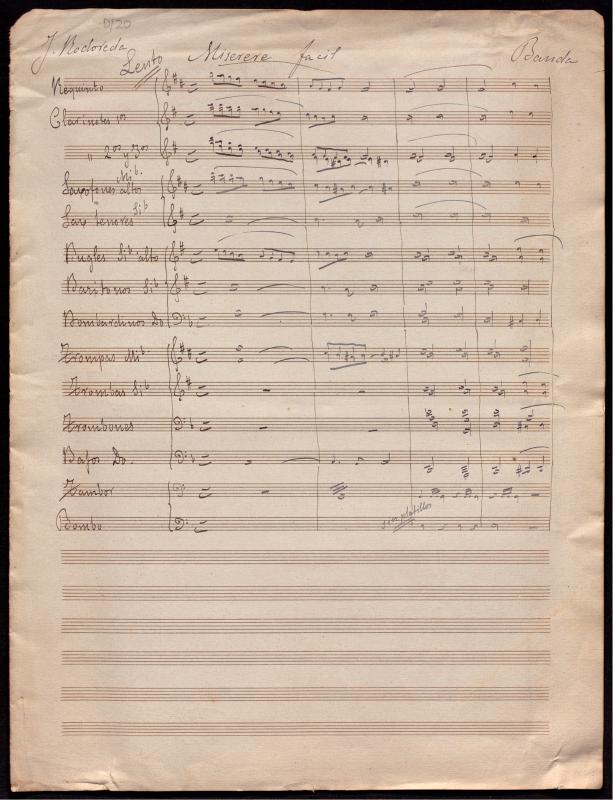 D/20
J. Rodoreda
Lento
Miserere facil
Banda
Requinto
Clarinetes 1os
" 2os y 3os
Saxofones alto Mib.
Sax tenores Sib
Bugles Sib alto
Baritonos Sib
Bombardinos Do
Trompas Mib.
Trombas Sib
Trombones
Bajos Do.
Tambor
Bombo
sin platillos